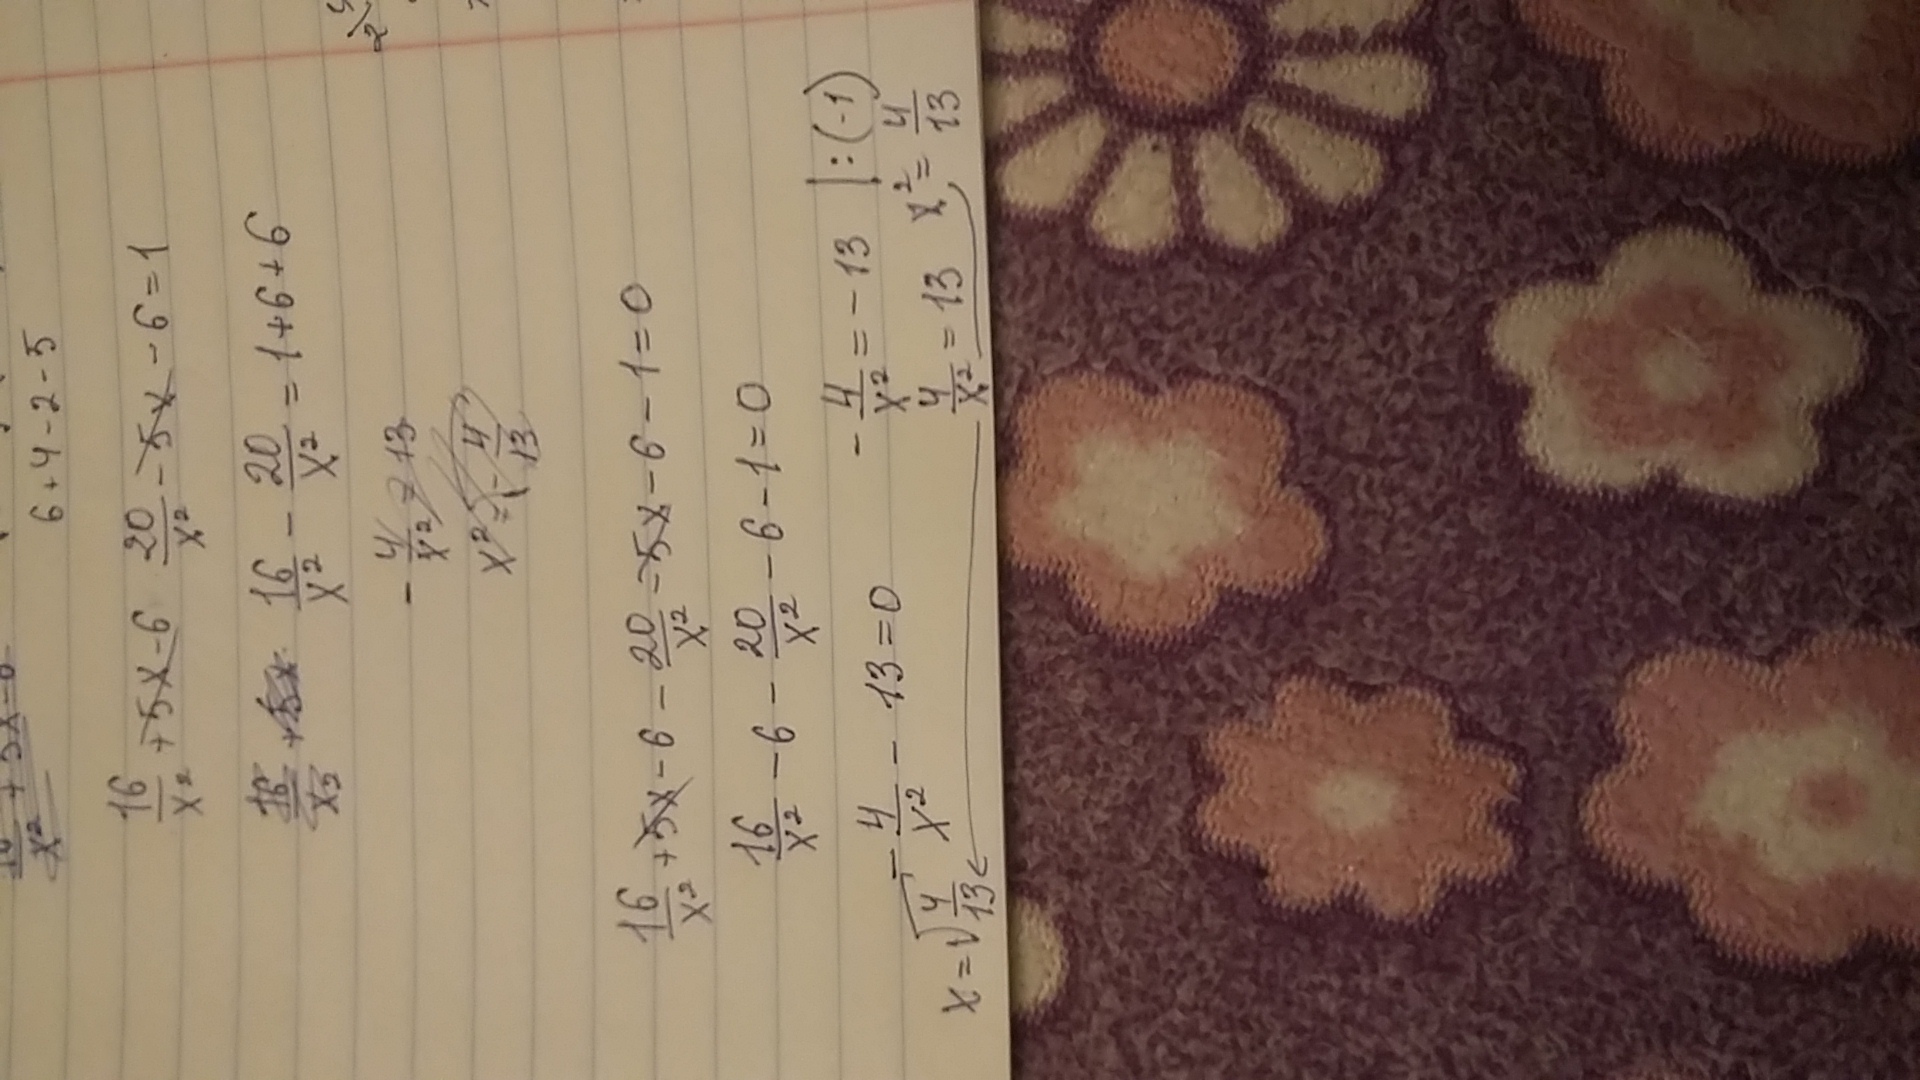 6+4-2-5
16/x² +5x-6 20/x² -5x-6=1
16/x² - 20/x² = 1+6+6
-4/x² = 13
x² = -4/13
16/x² +5x-6 - 20/x² -5x-6-1=0
16/x² -6 - 20/x² -6-1=0
-4/x² - 13=0 -4/x² = -13 |:(-1)
x=√4/13 4/x² = 13 x² = 4/13